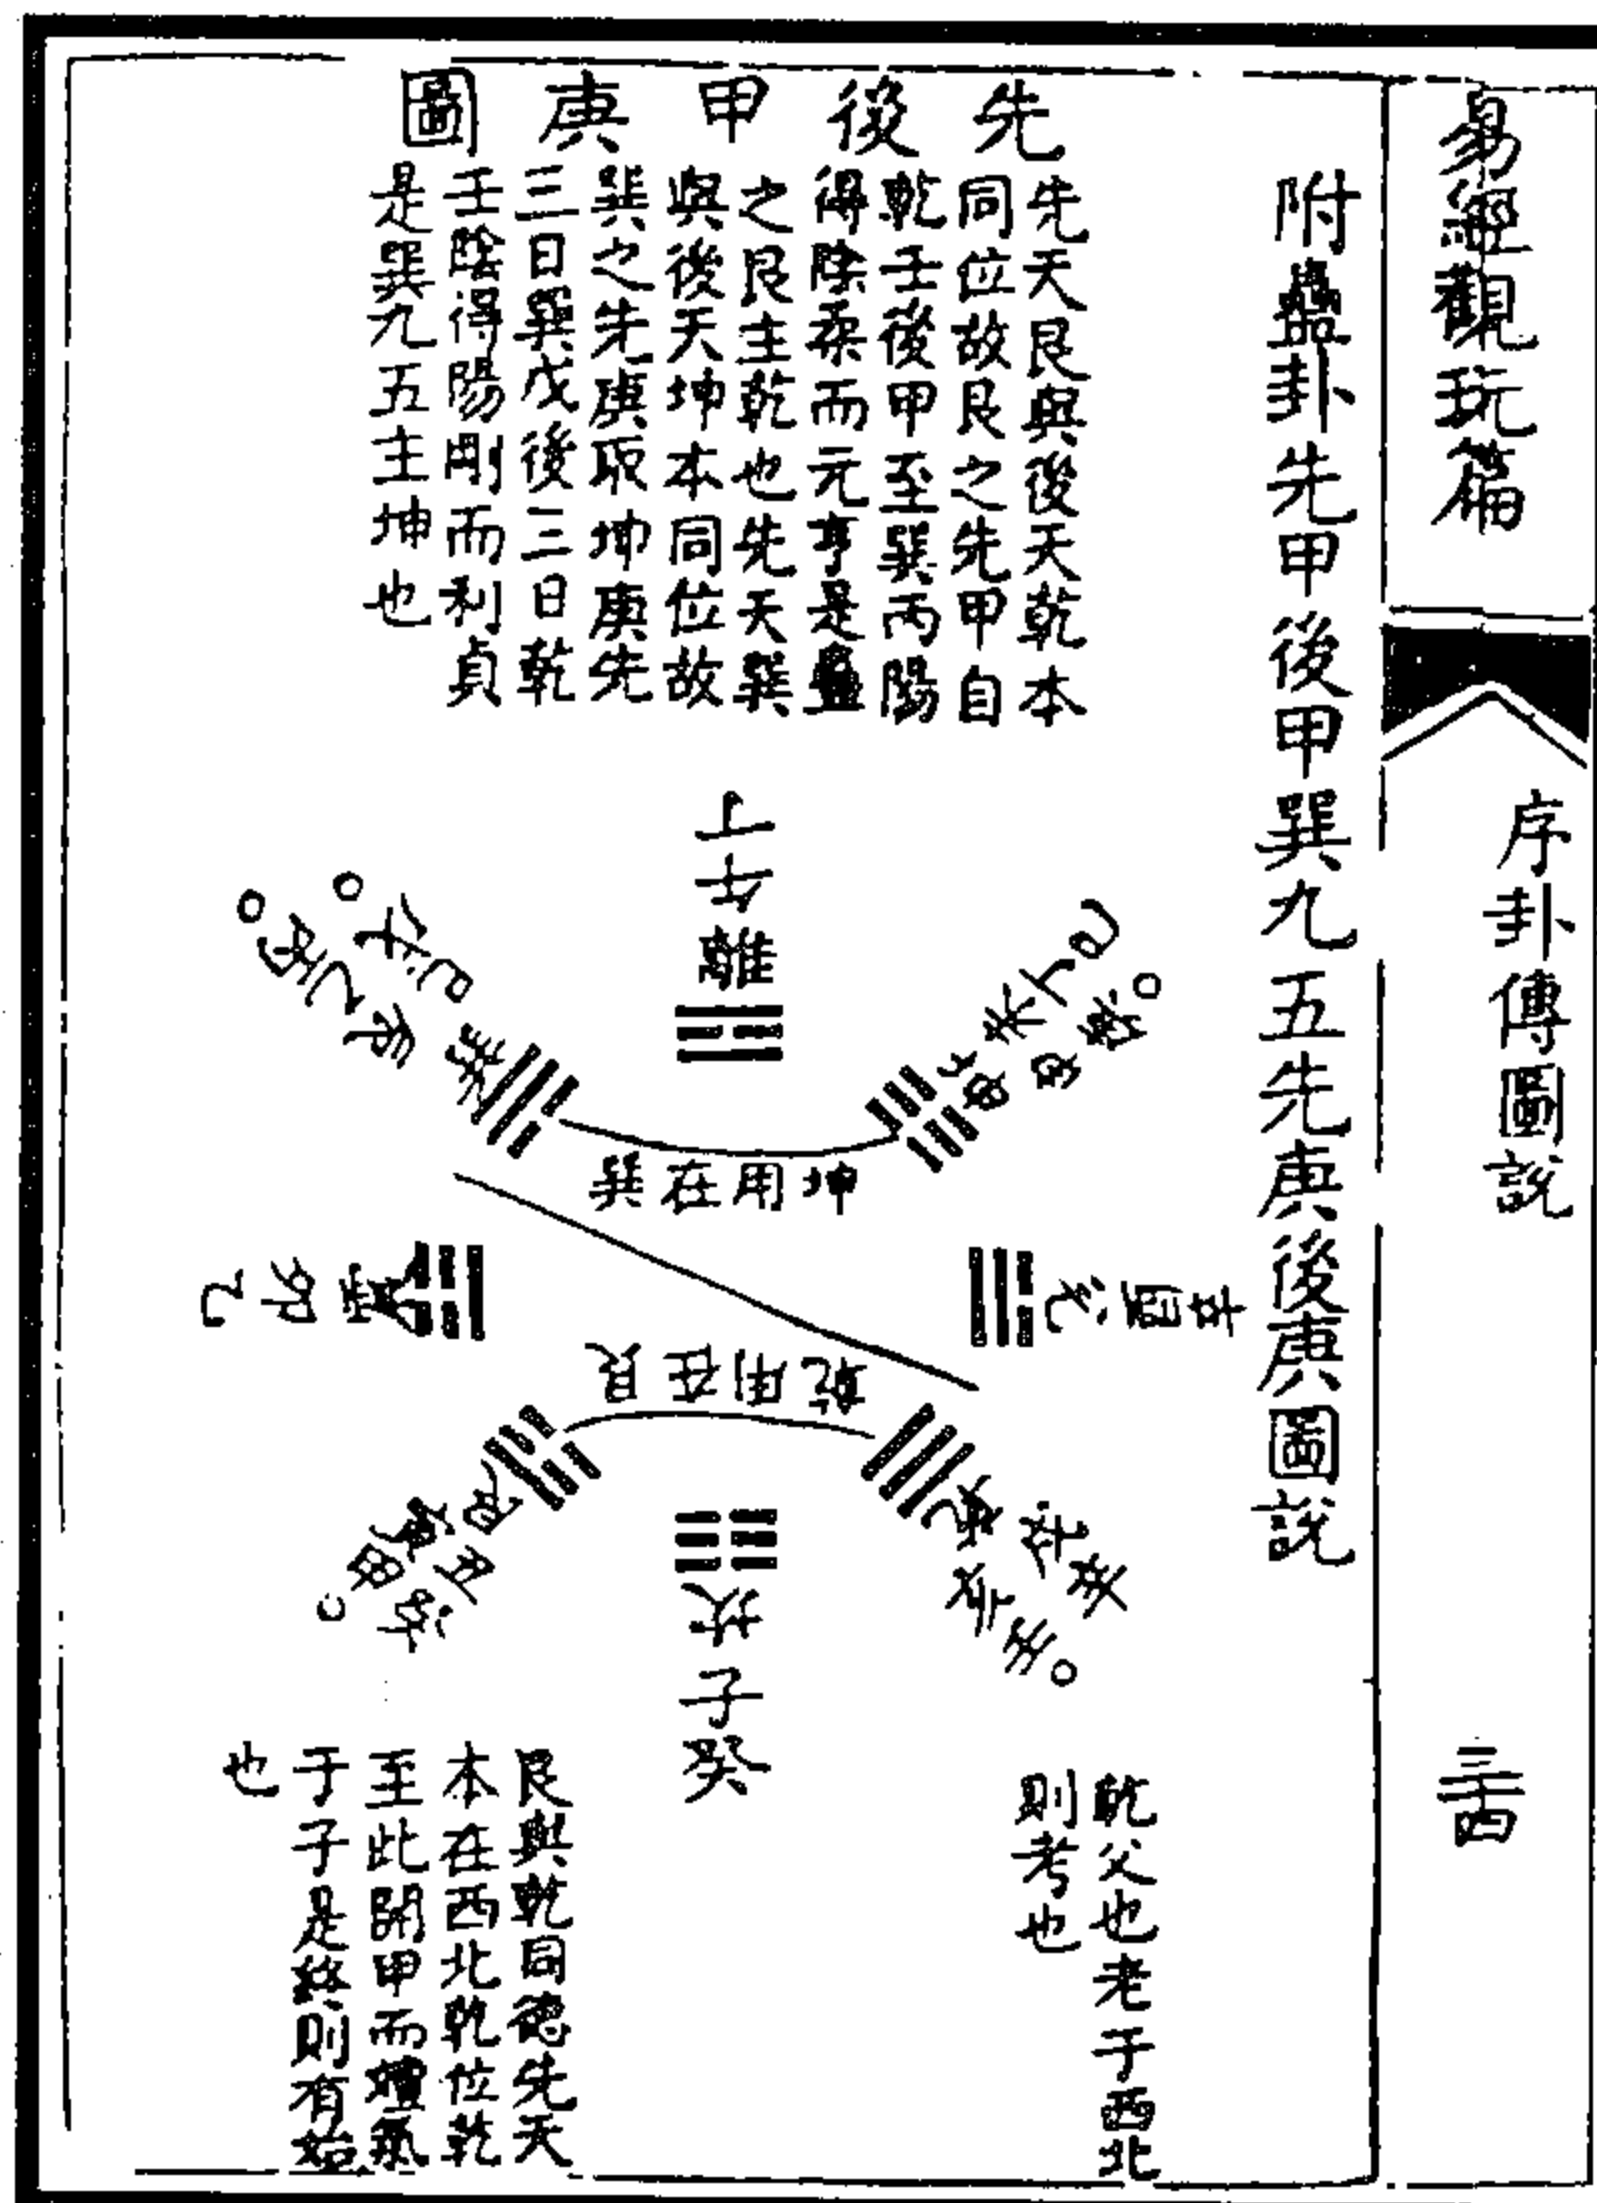 易經觀玩篇
序卦傳圖說
三十四
附蠱卦先甲後甲巽九五先庚後庚圖說
先後甲庚圖
先天艮與後天乾本
同位故艮之先甲自
乾壬後甲至巽丙陽
得陰柔而元亨是蠱
之艮主乾也先天巽
與後天坤本同位故
巽之先庚取坤庚先
三日巽戊後三日乾
壬陰得陽剛而利貞
是巽九五主坤也
離
坤用在巽
乾用在艮
坎子癸
乾父也老于西北
則考也
艮與乾同德先天
本在西北乾位乾
至此開甲而壇氣
于子是終則有始
也